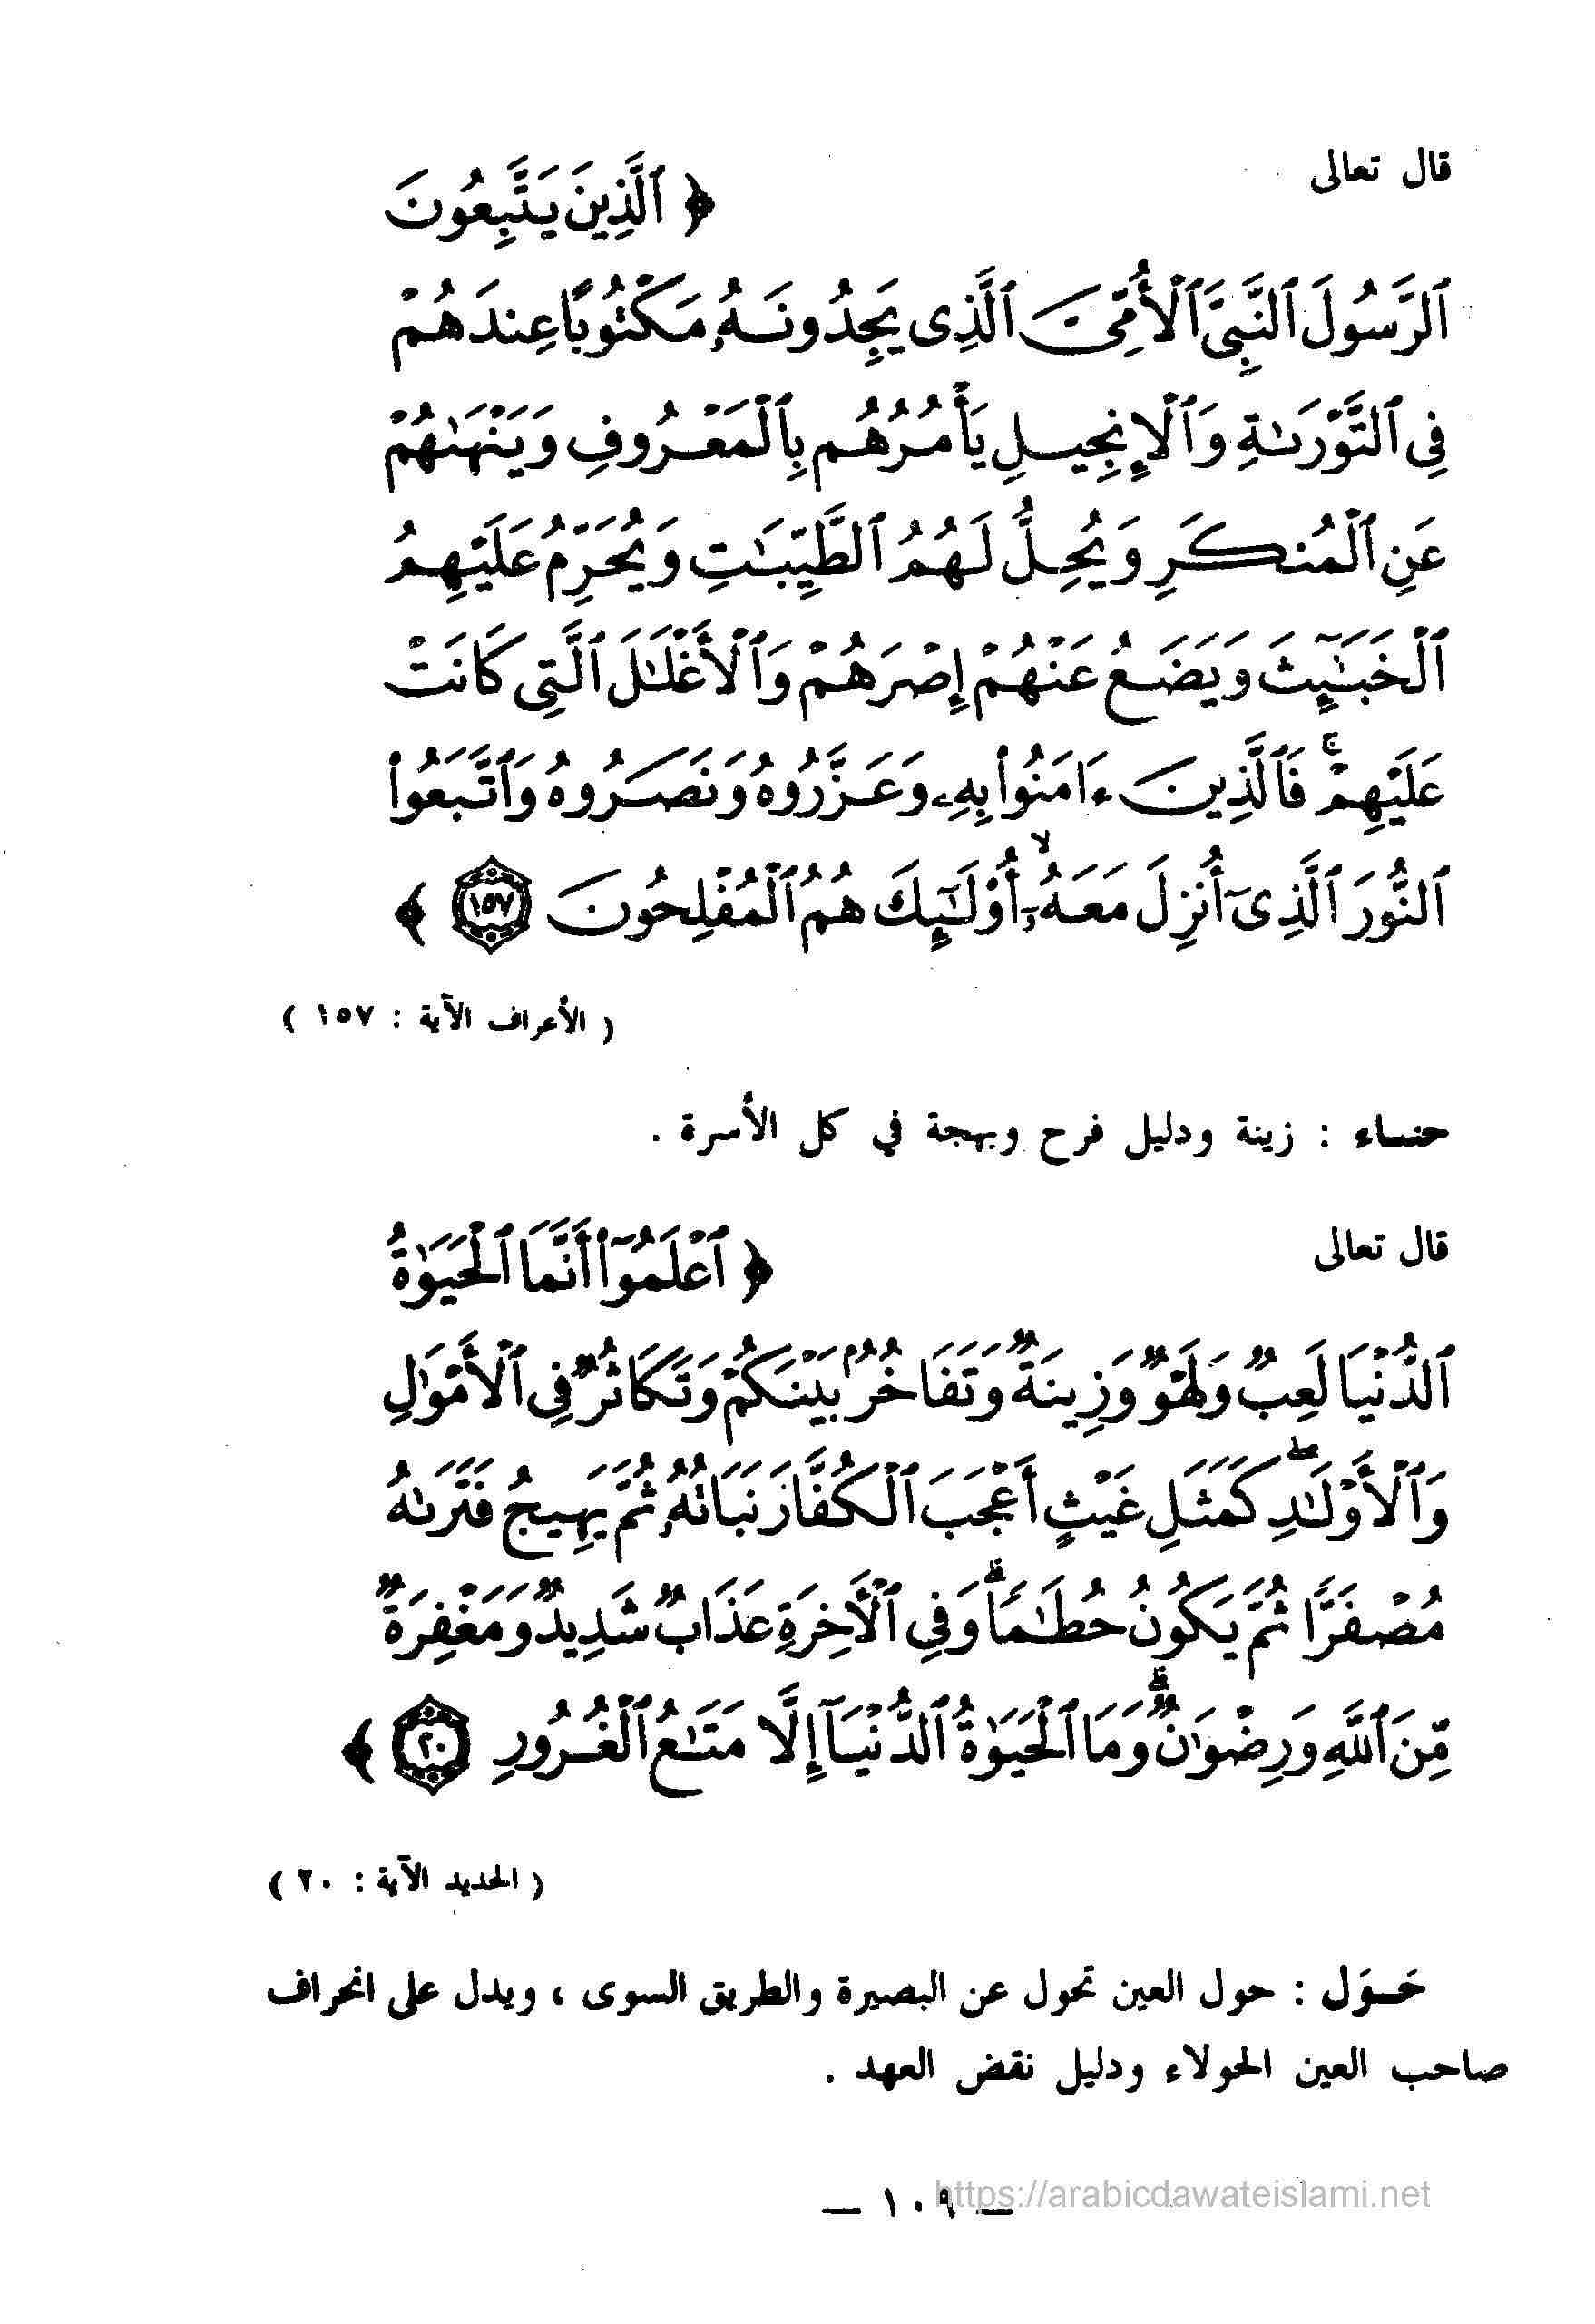 قال تعالى
﴿ ٱلَّذِينَ يَتَّبِعُونَ
ٱلرَّسُولَ ٱلنَّبِىَّ ٱلْأُمِّىَّ ٱلَّذِى يَجِدُونَهُۥ مَكْتُوبًا عِندَهُمْ
فِى ٱلتَّوْرَىٰةِ وَٱلْإِنجِيلِ يَأْمُرُهُم بِٱلْمَعْرُوفِ وَيَنْهَىٰهُمْ
عَنِ ٱلْمُنكَرِ وَيُحِلُّ لَهُمُ ٱلطَّيِّبَـٰتِ وَيُحَرِّمُ عَلَيْهِمُ
ٱلْخَبَـٰٓئِثَ وَيَضَعُ عَنْهُمْ إِصْرَهُمْ وَٱلْأَغْلَـٰلَ ٱلَّتِى كَانَتْ
عَلَيْهِمْ ۚ فَٱلَّذِينَ ءَامَنُوا۟ بِهِۦ وَعَزَّرُوهُ وَنَصَرُوهُ وَٱتَّبَعُوا۟
ٱلنُّورَ ٱلَّذِىٓ أُنزِلَ مَعَهُۥٓ ۙ أُو۟لَـٰٓئِكَ هُمُ ٱلْمُفْلِحُونَ ١٥٧ ﴾
( الأعراف الآية : ١٥٧ )
حنساء : زينة ودليل فرح وبهجة في كل الأسرة .
قال تعالى
﴿ ٱعْلَمُوٓا۟ أَنَّمَا ٱلْحَيَوٰةُ
ٱلدُّنْيَا لَعِبٌ وَلَهْوٌ وَزِينَةٌ وَتَفَاخُرٌۢ بَيْنَكُمْ وَتَكَاثُرٌ فِى ٱلْأَمْوَٰلِ
وَٱلْأَوْلَـٰدِ ۖ كَمَثَلِ غَيْثٍ أَعْجَبَ ٱلْكُفَّارَ نَبَاتُهُۥ ثُمَّ يَهِيجُ فَتَرَىٰهُ
مُصْفَرًّا ثُمَّ يَكُونُ حُطَـٰمًا ۖ وَفِى ٱلْـَٔاخِرَةِ عَذَابٌ شَدِيدٌ وَمَغْفِرَةٌ
مِّنَ ٱللَّهِ وَرِضْوَٰنٌ ۚ وَمَا ٱلْحَيَوٰةُ ٱلدُّنْيَآ إِلَّا مَتَـٰعُ ٱلْغُرُورِ ٢٠ ﴾
( الحديد الآية : ٢٠ )
حَـوَل : حول العين تحول عن البصيرة والطريق السوى ، ويدل على انحراف
صاحب العين الحولاء ودليل نقض العهد .
— ١٠٩ —
https://arabicdawateislami.net